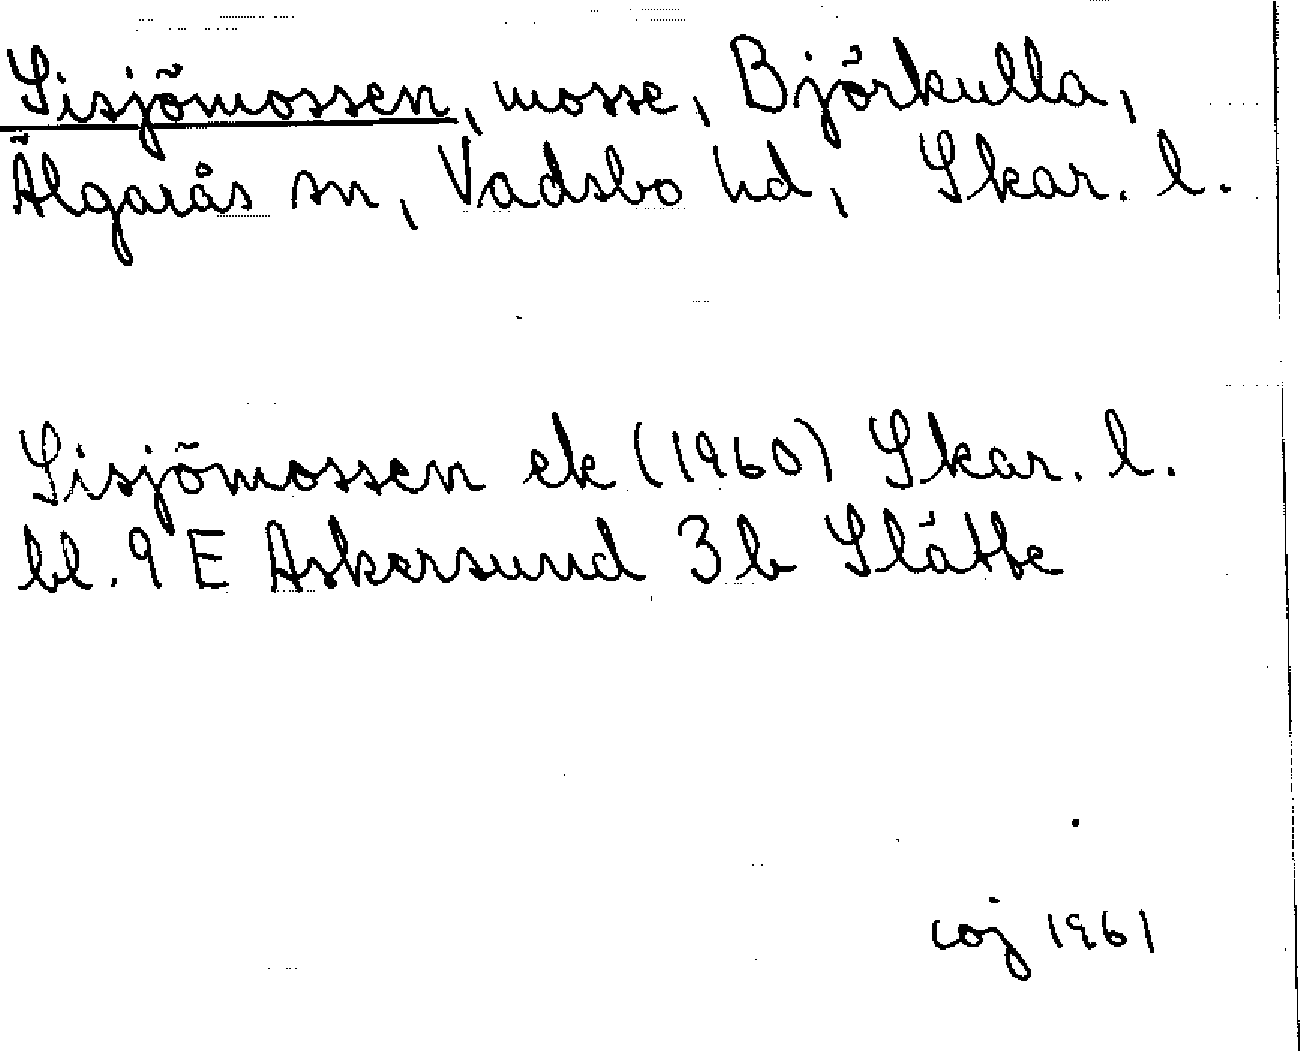 Sisjömossen, mosse, Björkulla,
Älgarås sn, Vadsbo hd, Skar. l.
Sisjömossen ek (1960) Skar. l.
bl. 9 E Askersund 3 b Slätte
coj 1961